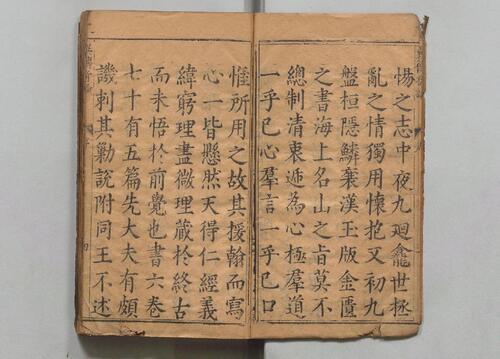 惕之志中夜九廻龕世拯
亂之情獨用懷抱又初九
盤桓隱鱗襄漢玉版金匱
之書海上名山之旨莫不
總制清衷遞為心極羣道
一乎已心羣言一乎已口
惟所用之故其援翰而寫
心一皆懸然天得仁經義
緯窮理盡微理蔵於終古
而未悟於前覺也書六卷
七十有五篇先大夫有頗
譏刺其勦說附同王不述